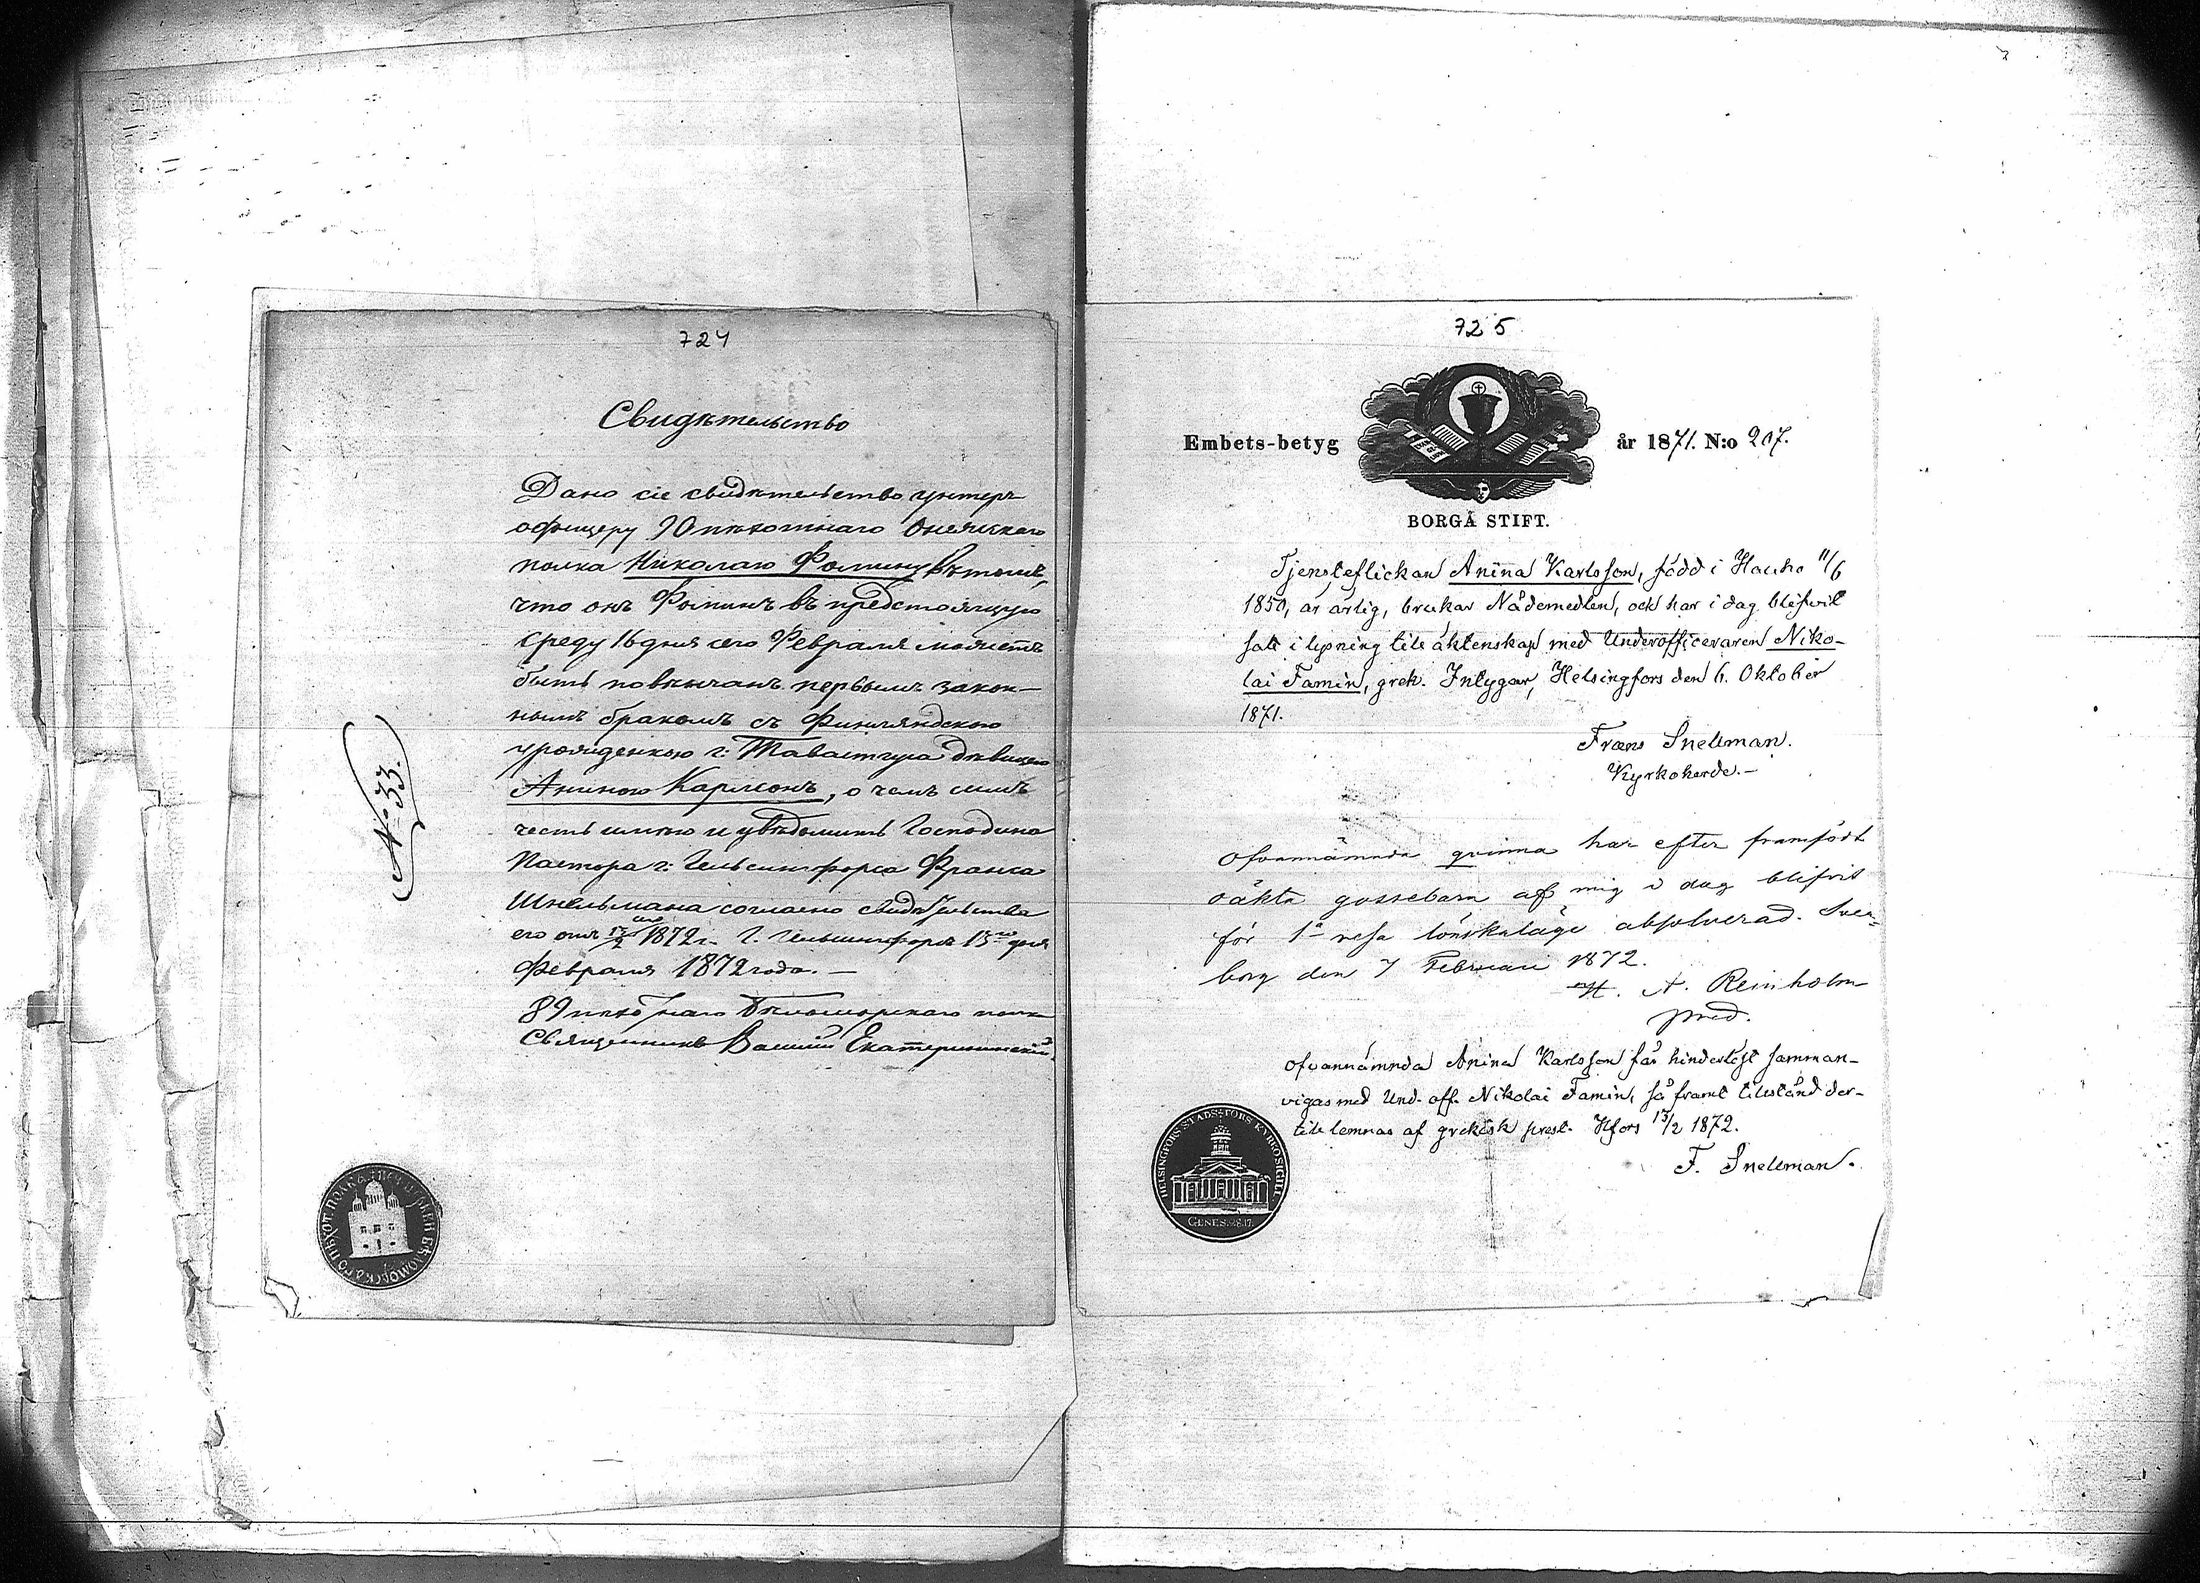 724
Свидѣтельство
Дано сіе свидѣтельство унтеръ
офицеру 90 пѣхотнаго Онежскаго
полка Николаю Фомину въ томъ,
что онъ Фоминъ въ предстоящую
среду 16 дня сего Февраля можетъ
быть повѣнчанъ первымъ закон-
нымъ бракомъ съ Финляндскою
урожденкою г: Тавастгуса дѣвицею
Аниною Карлсонъ, о чемъ симъ
честь имѣю и увѣдомить Господина
Пастора г: Гельсингфорса Франса
Шнельмана согласно свидѣтельства
его отъ 1872 г. Г. Гельсингфорсъ 15го дня
Февраля 1872 года. —
89 пѣхотнаго Бѣломорскаго полка
Священникъ Василій Екатерининскій.
№ 33.
725
Embets-betyg år 1871. N:o 207.
BORGÅ STIFT.
Tjensteflickan Anina Karlsson, född i Hauho 11/6
1850, är ärlig, brukar Nådemedlen, och har i dag blifvit
satt i lysning till äktenskap med Underofficeraren Niko-
lai Famin, grek. Intygar, Helsingfors den 6. Oktober
1871.
Frans Snellman.
Kyrkoherde. —
Ofvannämnda qvinna har efter framfödt
oäkta gossebarn af mig i dag blifvit
för 1a resa lönskaläge absolverad. Svea-
borg den 7 Februari 1872.
H. A. Reinholm
pred.
Ofvannämnda Anina Karlsson får hinderslöst samman-
vigas med Und. off. Nikolai Famin, så framt tillstånd der-
till lemnas af grekisk prest. Hfors 13/2 1872.
F. Snellman.
HELSINGFORS STADS-FÖRS KYRKOSIGILL
GENES. 28.17.